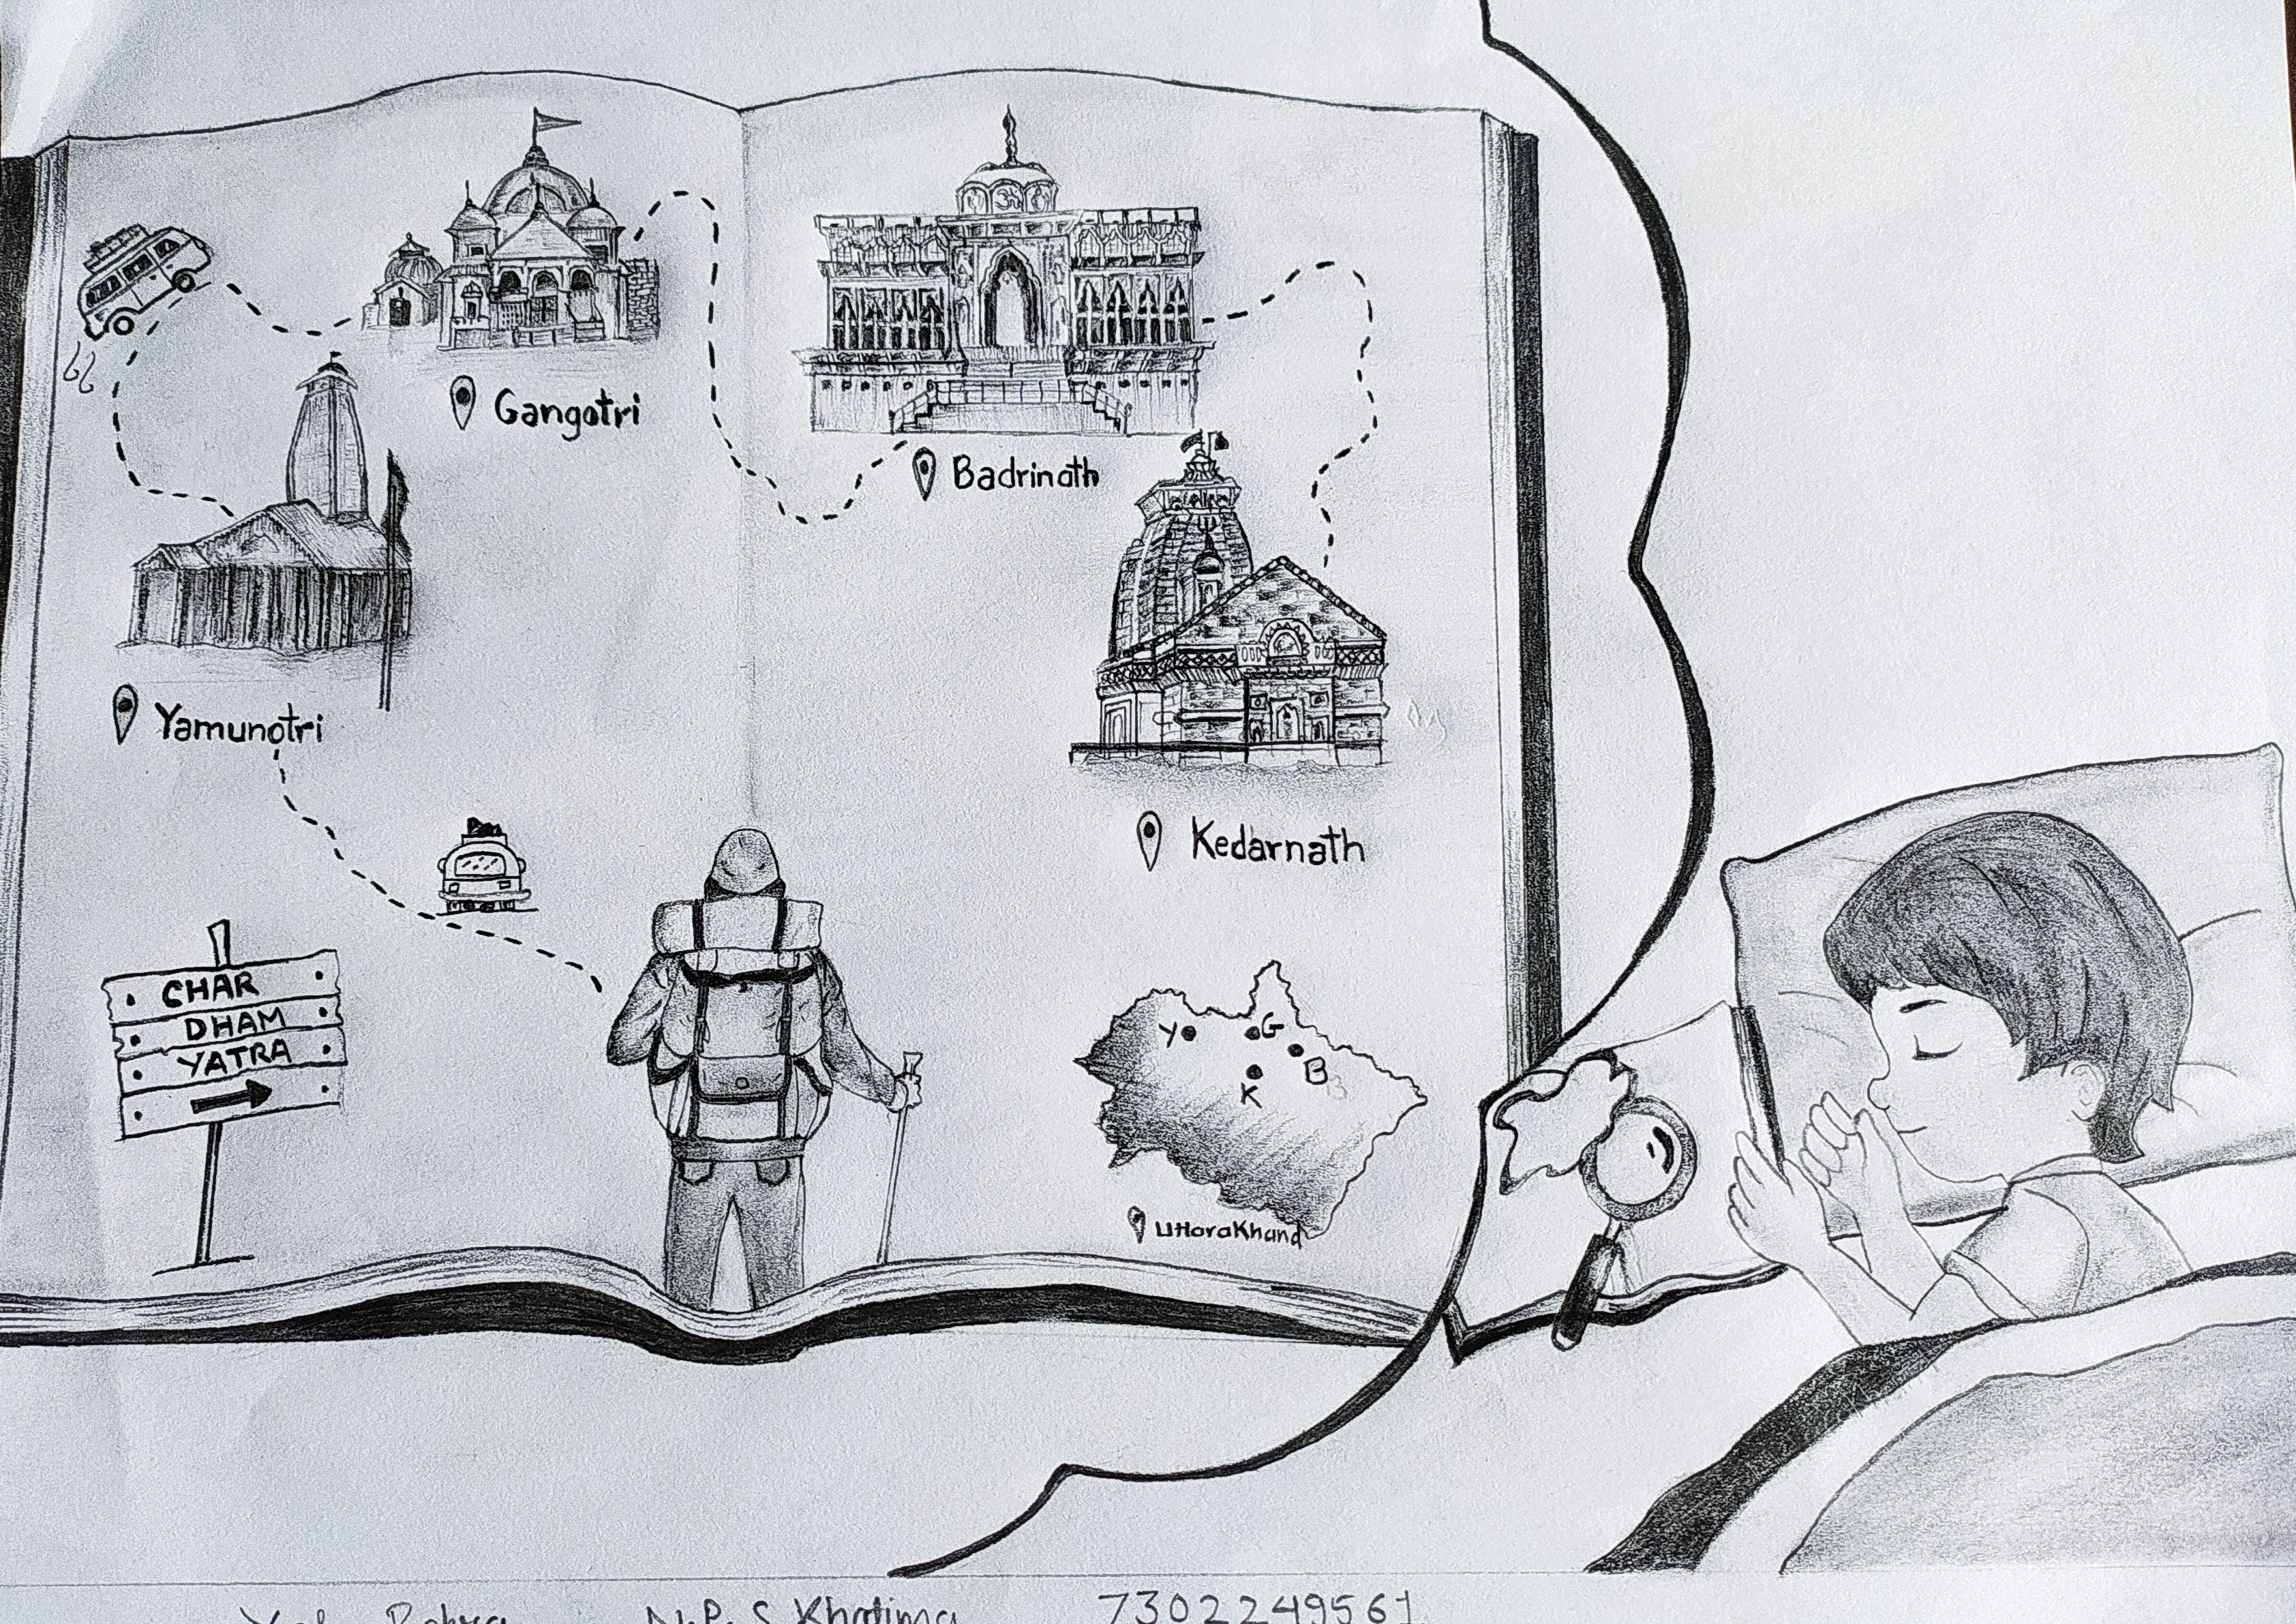 ॐ
Gangotri
Badrinath
Yamunotri
Kedarnath
CHAR
DHAM
YATRA
Y G
B
K
Uttarakhand
N.P.S Khatima 7302249561